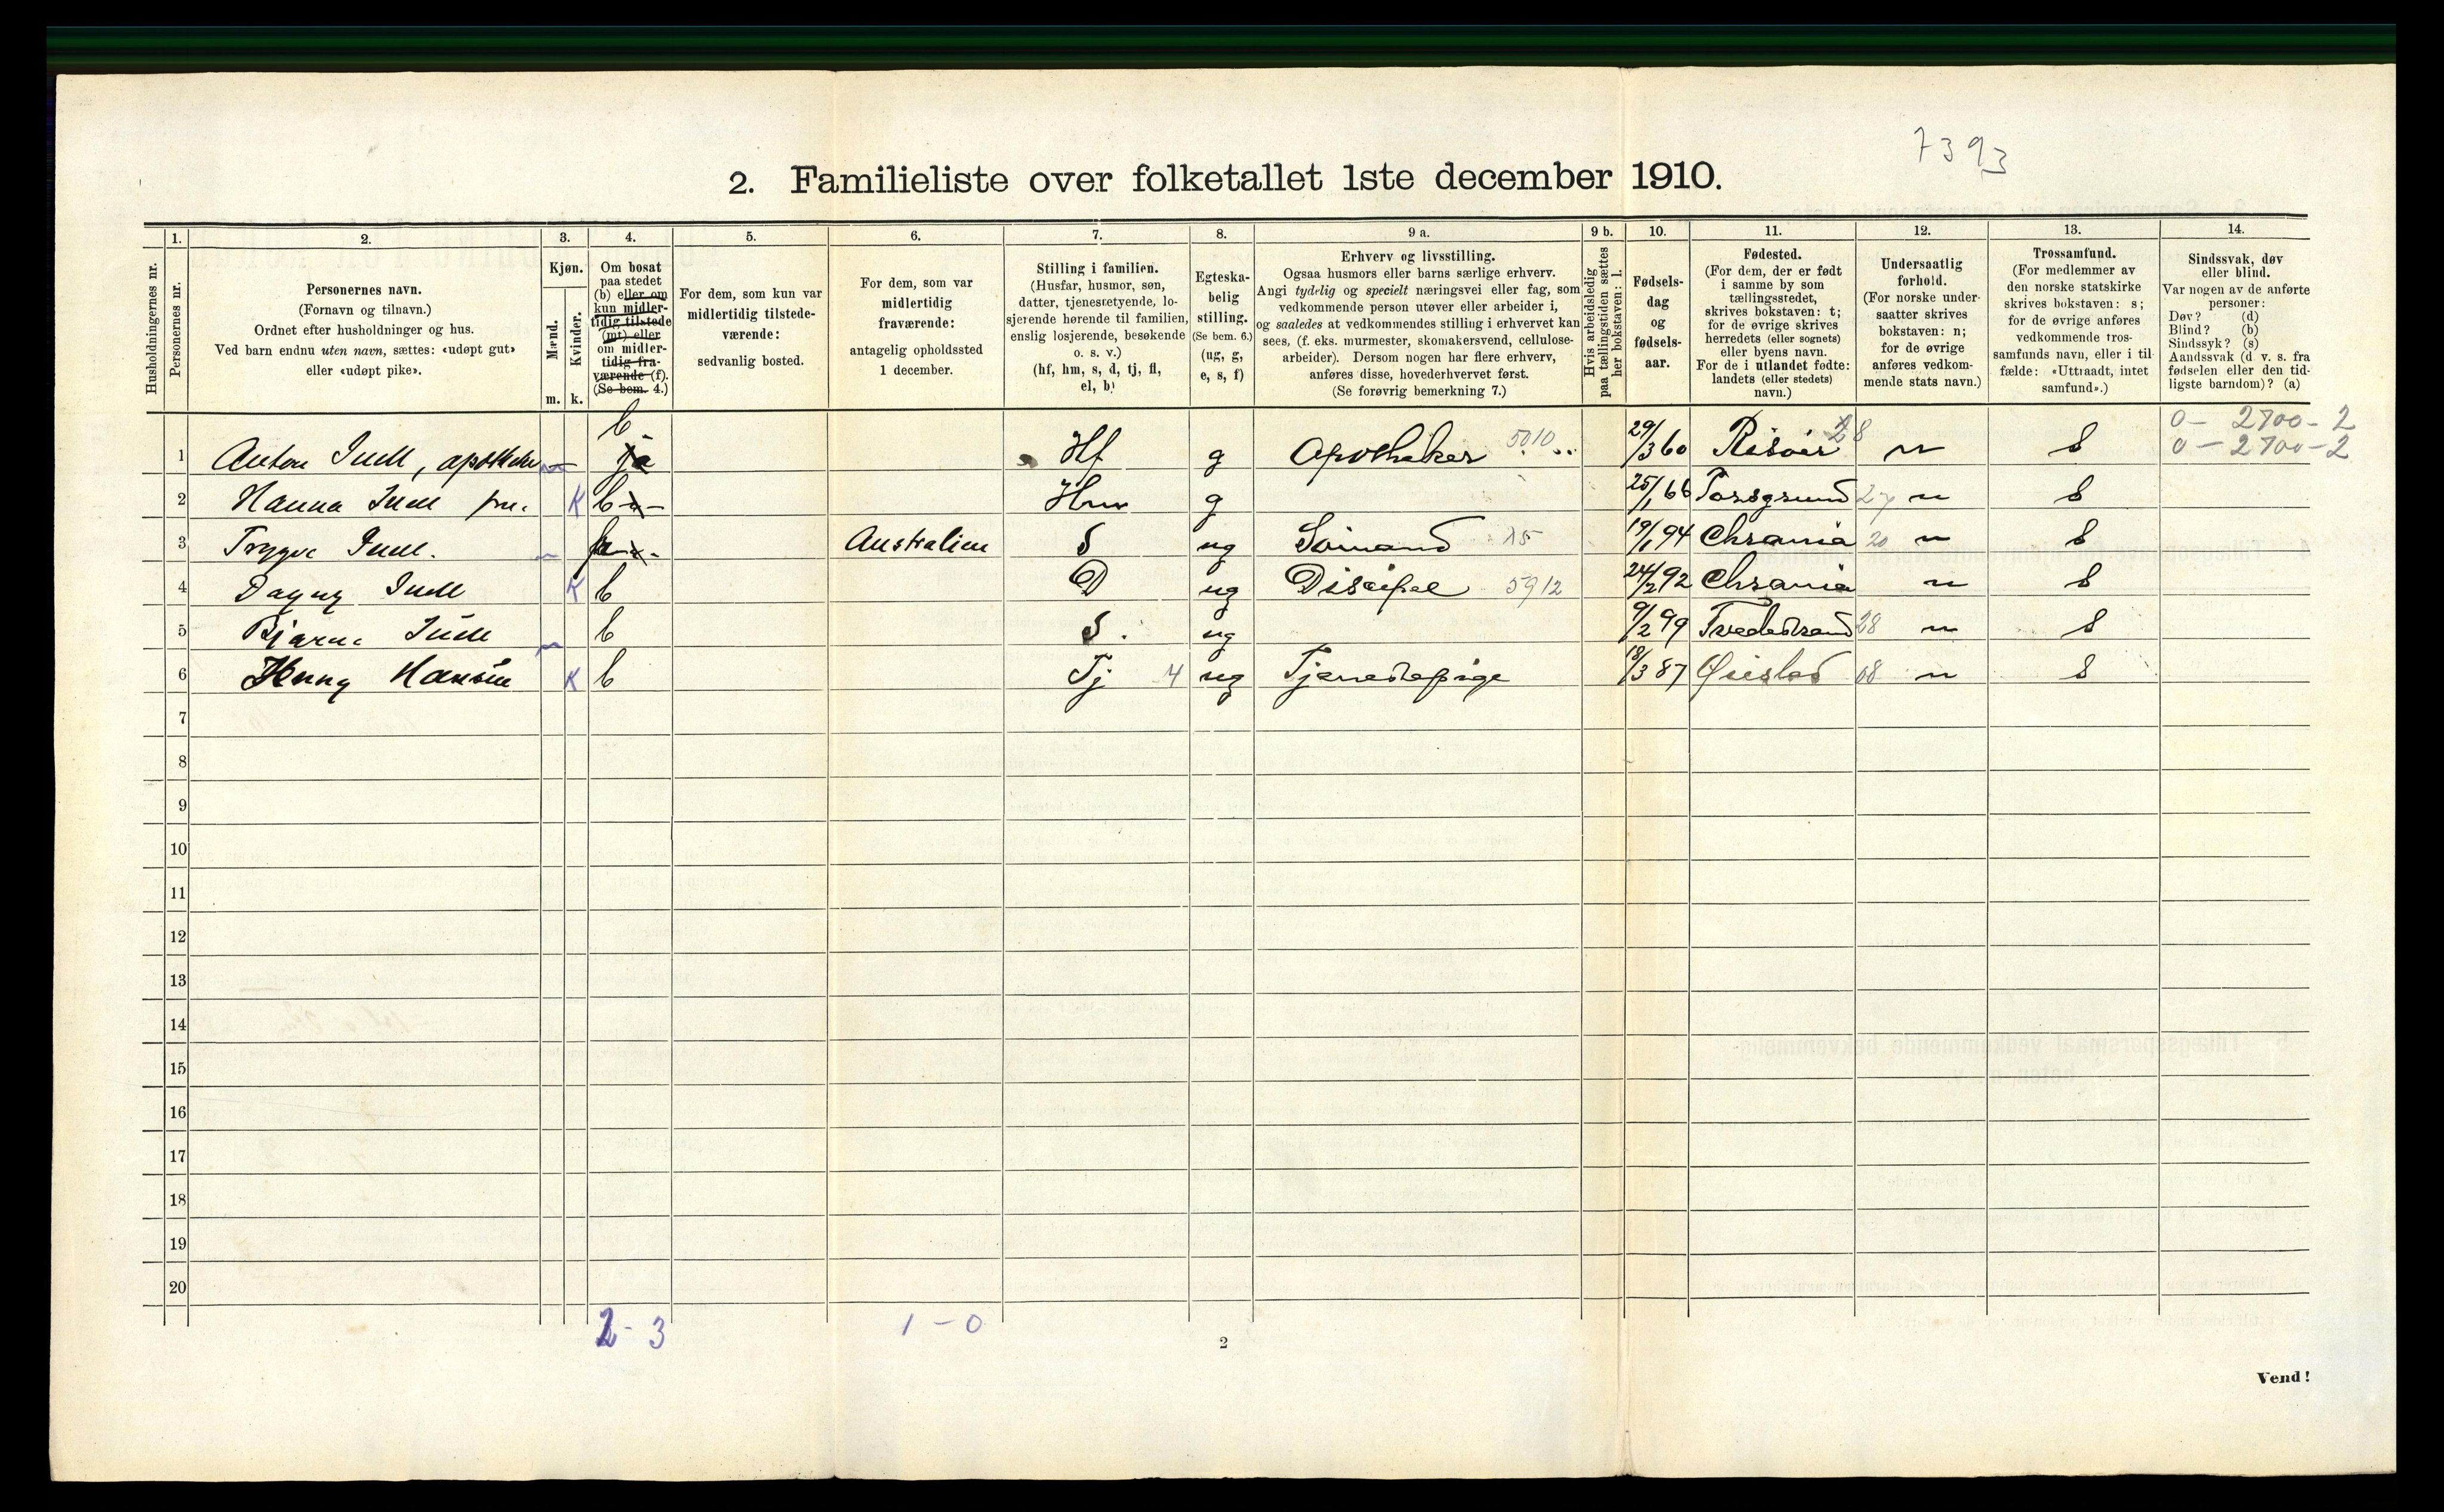 7393
2. Familieliste over folketallet 1ste december 1910.
1. 2. 3. 4. 5. 6. 7. 8. 9 a. 9 b. 10. 11. 12. 13. 14.
Husholdningernes nr.
Personernes nr.
Personernes navn.
(Fornavn og tilnavn.)
Ordnet efter husholdninger og hus.
Ved barn endnu uten navn, sættes: «udøpt gut»
eller «udøpt pike».
Kjøn.
Mænd.
Kvinder.
m. k.
Om bosat
paa stedet
(b) eller om
kun midler-
tidig tilstede
(mt) eller
om midler-
tidig fra-
værende (f).
(Se bem. 4.)
For dem, som kun var
midlertidig tilstede-
værende:
sedvanlig bosted.
For dem, som var
midlertidig
fraværende:
antagelig opholdssted
1 december.
Stilling i familien.
(Husfar, husmor, søn,
datter, tjenestetyende, lo-
sjerende hørende til familien,
enslig losjerende, besøkende
o. s. v.)
(hf, hm, s, d, tj, fl,
el, b)
Egteska-
belig
stilling.
(Se bem. 6.)
(ug, g,
e, s, f)
Erhverv og livsstilling.
Ogsaa husmors eller barns særlige erhverv.
Angi tydelig og specielt næringsvei eller fag, som
vedkommende person utøver eller arbeider i,
og saaledes at vedkommendes stilling i erhvervet kan
sees, (f. eks. murmester, skomakersvend, cellulose-
arbeider). Dersom nogen har flere erhverv,
anføres disse, hovederhvervet først.
(Se forøvrig bemerkning 7.)
Hvis arbeidsledig
paa tællingstiden sættes
her bokstaven: l.
Fødsels-
dag
og
fødsels-
aar.
Fødested.
(For dem, der er født
i samme by som
tællingsstedet,
skrives bokstaven: t;
for de øvrige skrives
herredets (eller sognets)
eller byens navn.
For de i utlandet fødte:
landets (eller stedets)
navn.)
Undersaatlig
forhold.
(For norske under-
saatter skrives
bokstaven: n;
for de øvrige
anføres vedkom-
mende stats navn.)
Trossamfund.
(For medlemmer av
den norske statskirke
skrives bokstaven: s;
for de øvrige anføres
vedkommende tros-
samfunds navn, eller i til-
fælde: «Uttraadt, intet
samfund».)
Sindssvak, døv
eller blind.
Var nogen av de anførte
personer:
Døv? (d)
Blind? (b)
Sindssyk? (s)
Aandssvak (d v. s. fra
fødselen eller den tid-
ligste barndom)? (a)
0 - 2700 - 2
1 Anton Juell, apotheker m b ja Hf g Apotheker 5010 29/3 60 Risöer 28 n S 0 - 2700 - 2
2 Hanna Juell fru. K b Hm g 25/1 66 Porsgrund 27 n S
3 Trygve Juell. m f Australien S ug Sömand 15 19/1 94 Chrania 20 n S
4 Dagny Juell K b D ug Discipel 5912 24/2 92 Chrania n S
5 Bjarne Juell m b S. ug 9/2 99 Tvedestrand 28 n S
6 Jenny Hansen K b Tj 4 ug Tjenestepige 18/3 87 Øiestad 08 n S
7
8
9
10
11
12
13
14
15
16
17
18
19
20
2 - 3 1 - 0
2
Vend!